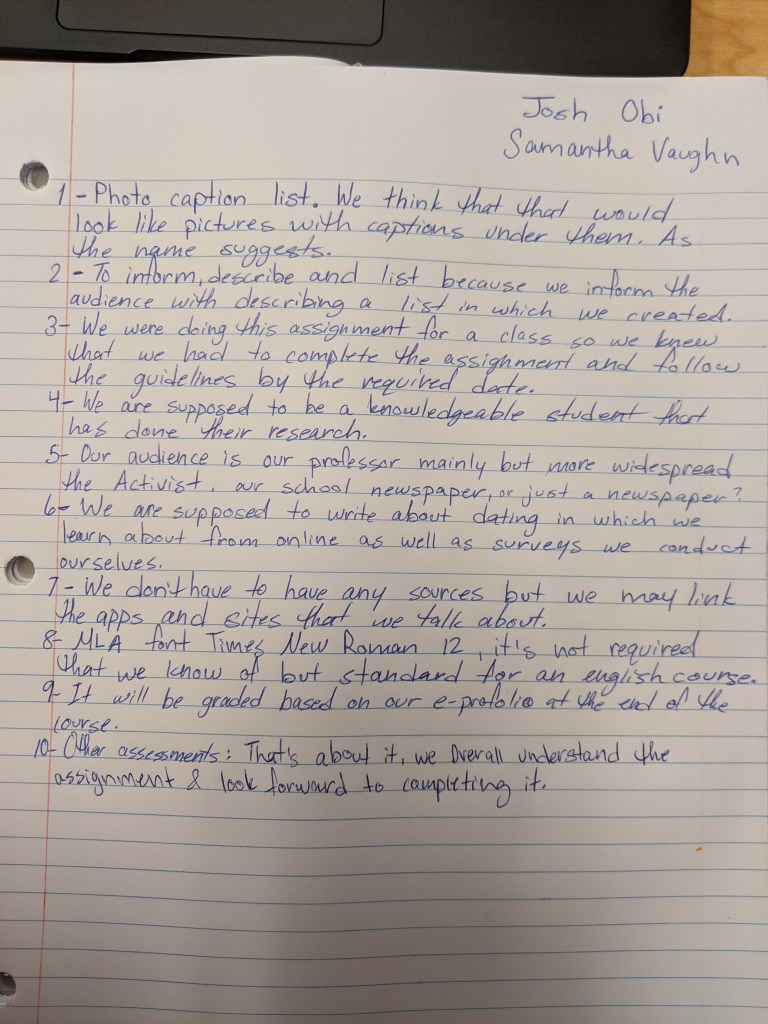 Josh Obi
Samantha Vaughn
1 - Photo caption list. We think that that would
look like pictures with captions under them. As
the name suggests.
2 - To inform, describe and list because we inform the
audience with describing a list in which we created.
3- We were doing this assignment for a class so we knew
that we had to complete the assignment and follow
the guidelines by the required date.
4- We are supposed to be a knowledgeable student that
has done their research.
5- Our audience is our professor mainly but more widespread
the Activist, our school newspaper, or just a newspaper?
6- We are supposed to write about dating in which we
learn about from online as well as surveys we conduct
ourselves.
7- We don't have to have any sources but we may link
the apps and sites that we talk about.
8- MLA font Times New Roman 12, it's not required
that we know of but standard for an english course.
9- It will be graded based on our e-profolio at the end of the
course.
10- Other assessments: That's about it, we Overall understand the
assignment & look forward to completing it.